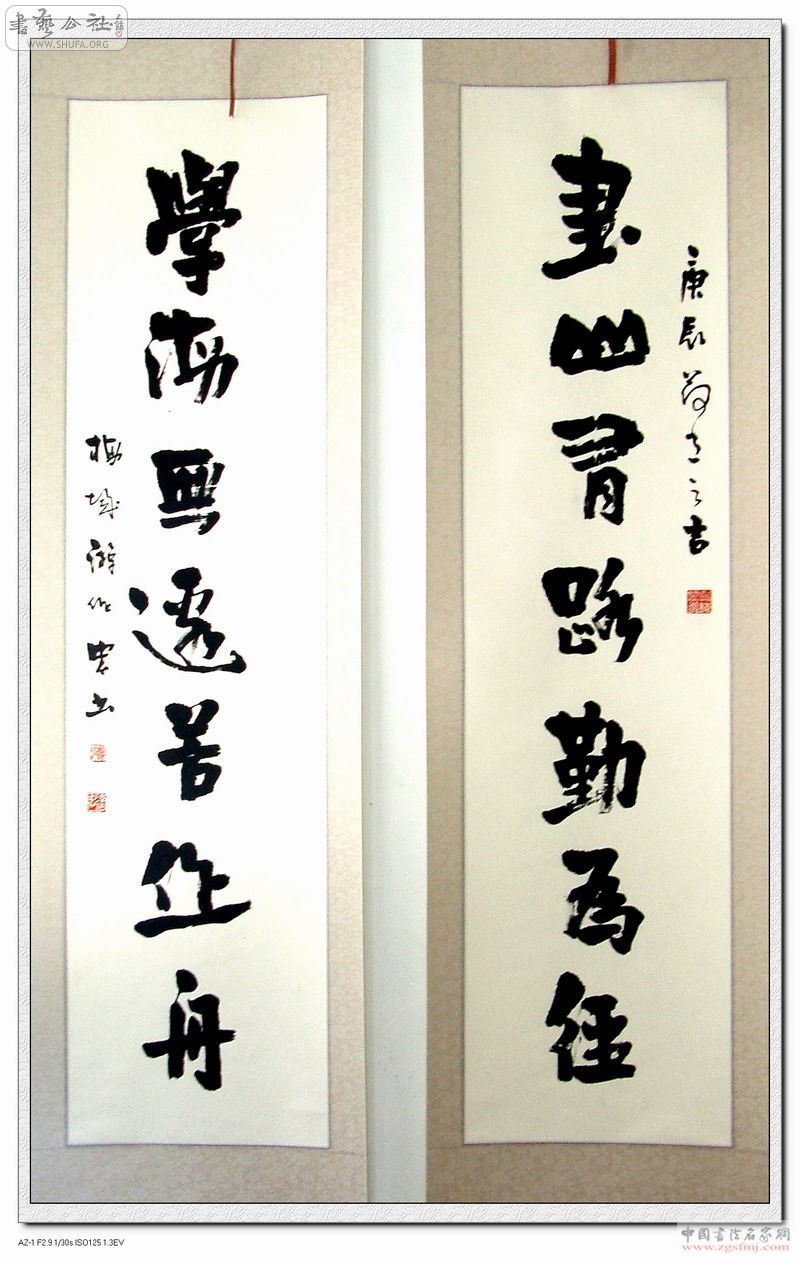 書藝公社
WWW.SHUFA.ORG
書山有路勤為徑
庚辰 之吉
學海無邊苦作舟
梅城游作 書
AZ-1 F2.9 1/30s ISO125 1.3EV
中國書法名家網
www.zgsfmj.com